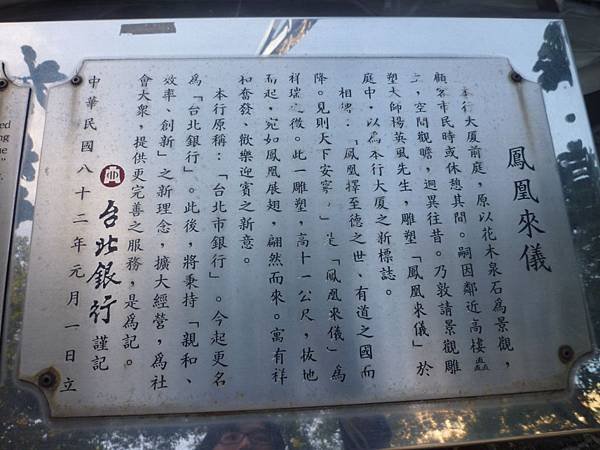 鳳凰來儀
本行大厦前庭，原以花木泉石為景觀，
顧客市民時或休憩其間。嗣因鄰近高樓矗
，空間觀瞻，迥異往昔。乃敦請景觀雕
塑大師楊英風先生，雕塑「鳳凰來儀」於
庭中，以為本行大厦之新標誌。
相傳：「鳳凰擇至德之世、有道之國而
降。見則天下安寧。」「鳳凰來儀」為
祥瑞之徵。此一雕塑，高十一公尺，拔地
而起，宛如鳳凰展翅，翩然而來。寓有祥
和奮發、歡樂迎賓之新意。
本行原稱：「台北市銀行」。今起更名
為「台北銀行」。此後，將秉持「親和、
效率、創新」之新理念，擴大經營，為社
會大衆，提供更完善之服務，是為記。
台北銀行 謹記
中華民國八十二年元月一日立
ed
ng
ue
"